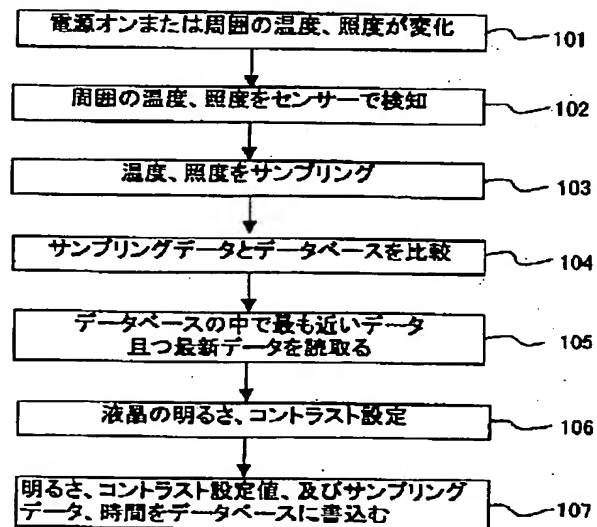 電源オンまたは周囲の温度、照度が変化
101
周囲の温度、照度をセンサーで検知
102
温度、照度をサンプリング
103
サンプリングデータとデータベースを比較
104
データベースの中で最も近いデータ
且つ最新データを読取る
105
液晶の明るさ、コントラスト設定
106
明るさ、コントラスト設定値、及びサンプリング
データ、時間をデータベースに書込む
107